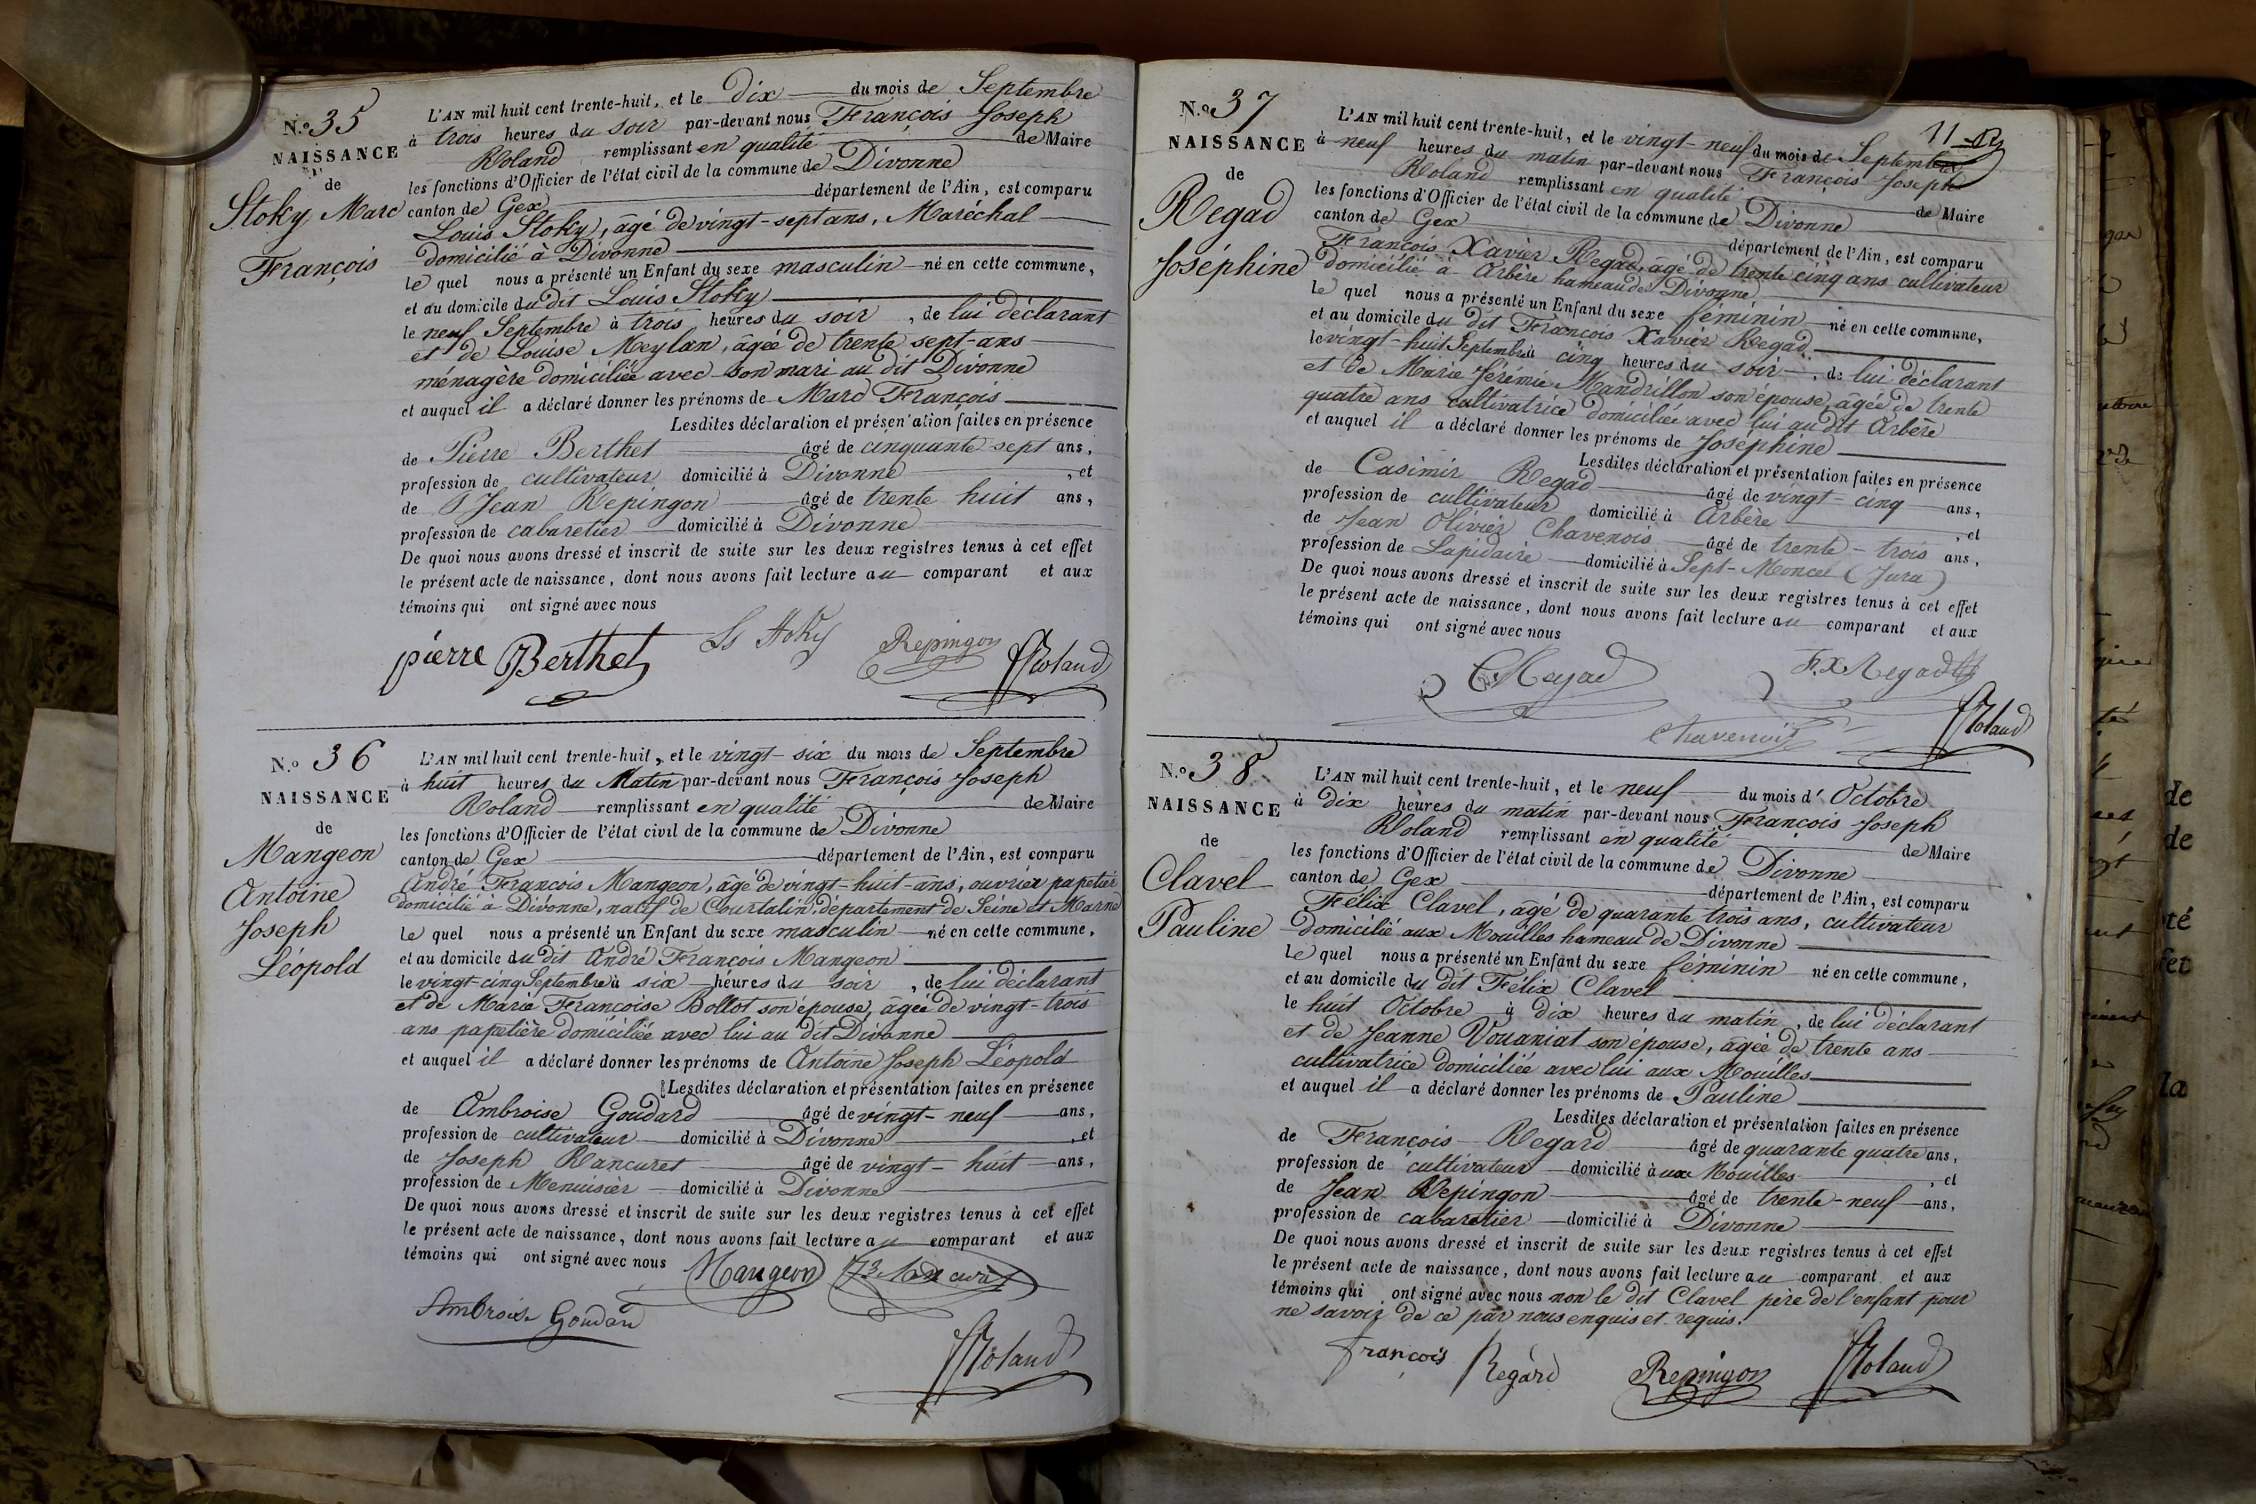 N.o 35
NAISSANCE
de
Stoky Marc
François
L'AN mil huit cent trente-huit, et le dix du mois de Septembre
à trois heures du soir par-devant nous François Joseph
Roland remplissant en qualité de Maire
les fonctions d'Officier de l'état civil de la commune de Divonne
canton de Gex département de l'Ain, est comparu
Louis Stoky, âgé de vingt-sept ans, Maréchal
domicilié à Divonne
le quel nous a présenté un Enfant du sexe masculin né en cette commune,
et au domicile du dit Louis Stoky
le neuf Septembre à trois heures du soir, de lui déclarant
et de Louise Meylan, âgée de trente sept-ans
ménagère domiciliée avec son mari au dit Divonne
et auquel il a déclaré donner les prénoms de Marc François
Lesdites déclaration et présentation faites en présence
de Pierre Berthet âgé de cinquante sept ans,
profession de cultivateur domicilié à Divonne, et
de Jean Repingon âgé de trente huit ans,
profession de cabaretier domicilié à Divonne
De quoi nous avons dressé et inscrit de suite sur les deux registres tenus à cet effet
le présent acte de naissance, dont nous avons fait lecture au comparant et aux
témoins qui ont signé avec nous
pierre Berthet Ls Stoky Repingon Roland
N.o 36
NAISSANCE
de
Mangeon
Antoine
Joseph
Léopold
L'AN mil huit cent trente-huit, et le vingt-six du mois de Septembre
à huit heures du Matin par-devant nous François Joseph
Roland remplissant en qualité de Maire
les fonctions d'Officier de l'état civil de la commune de Divonne
canton de Gex département de l'Ain, est comparu
André François Mangeon, âgé de vingt-huit-ans, ouvrier papetier
domicilié à Divonne, natif de Courtalin, département de Seine et Marne
le quel nous a présenté un Enfant du sexe masculin né en cette commune,
et au domicile du dit André François Mangeon
le vingt-cinq Septembre à six heures du soir, de lui déclarant
et de Marie Françoise Bollot son épouse, âgée de vingt-trois
ans papetière domiciliée avec lui au dit Divonne
et auquel il a déclaré donner les prénoms de Antoine Joseph Léopold
Lesdites déclaration et présentation faites en présence
de Ambroise Goudard âgé de vingt-neuf ans,
profession de cultivateur domicilié à Divonne, et
de Joseph Rancuret âgé de vingt-huit ans,
profession de Menuisier domicilié à Divonne
De quoi nous avons dressé et inscrit de suite sur les deux registres tenus à cet effet
le présent acte de naissance, dont nous avons fait lecture au comparant et aux
témoins qui ont signé avec nous Mangeon
Ambroise Goudard
Roland
11
N.o 37
NAISSANCE
de
Regad
Joséphine
L'AN mil huit cent trente-huit, et le vingt-neuf du mois de Septembre
à neuf heures du matin par-devant nous François Joseph
Roland remplissant en qualité de Maire
les fonctions d'Officier de l'état civil de la commune de Divonne
canton de Gex département de l'Ain, est comparu
François Xavier Regad, âgé de trente cinq ans cultivateur
domicilié à Arbère hameau de Divonne
le quel nous a présenté un Enfant du sexe féminin né en cette commune,
et au domicile du dit François Xavier Regad
le vingt-huit Septembre à cinq heures du soir, de lui déclarant
et de Marie Jérémie Mandrillon son épouse, âgée de trente
quatre ans cultivatrice domiciliée avec lui au dit Arbère
et auquel il a déclaré donner les prénoms de Joséphine
Lesdites déclaration et présentation faites en présence
de Casimir Regad âgé de vingt-cinq ans,
profession de cultivateur domicilié à Arbère, et
de Jean Olivier Chavenois âgé de trente-trois ans,
profession de Lapidaire domicilié à Sept-Moncel (Jura)
De quoi nous avons dressé et inscrit de suite sur les deux registres tenus à cet effet
le présent acte de naissance, dont nous avons fait lecture au comparant et aux
témoins qui ont signé avec nous
C Regad F. X Regad
Chavenois Roland
N.o 38
NAISSANCE
de
Clavel
Pauline
L'AN mil huit cent trente-huit, et le neuf du mois d'Octobre
à dix heures du matin par-devant nous François Joseph
Roland remplissant en qualité de Maire
les fonctions d'Officier de l'état civil de la commune de Divonne
canton de Gex département de l'Ain, est comparu
Félix Clavel, âgé de quarante trois ans, cultivateur
domicilié aux Mouilles hameau de Divonne
le quel nous a présenté un Enfant du sexe féminin né en cette commune,
et au domicile du dit Félix Clavel
le huit Octobre à dix heures du matin, de lui déclarant
et de Jeanne Vouaniat son épouse, âgée de trente ans
cultivatrice domiciliée avec lui aux Mouilles
et auquel il a déclaré donner les prénoms de Pauline
Lesdites déclaration et présentation faites en présence
de François Regard âgé de quarante quatre ans,
profession de cultivateur domicilié aux Mouilles, et
de Jean Repingon âgé de trente-neuf ans,
profession de cabaretier domicilié à Divonne
De quoi nous avons dressé et inscrit de suite sur les deux registres tenus à cet effet
le présent acte de naissance, dont nous avons fait lecture au comparant et aux
témoins qui ont signé avec nous non le dit Clavel père de l'enfant pour
ne savoir de ce par nous enquis et requis.
François Regard Repingon Roland